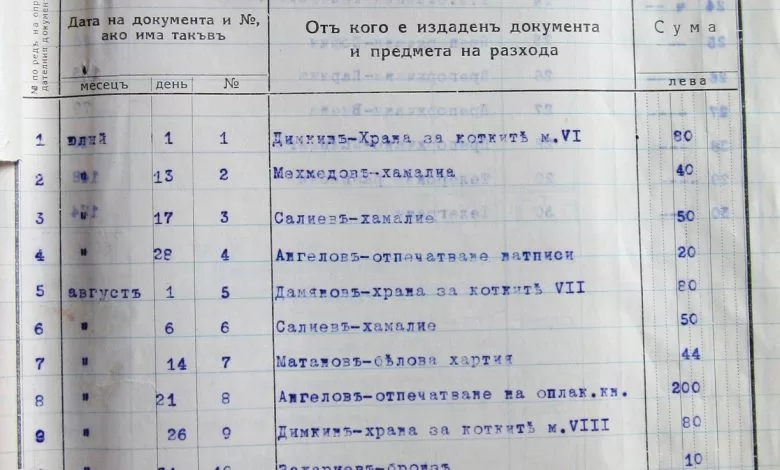 Дата на документа и №, ако има такъвъ
месецъ день №
Отъ кого е издаденъ документа и предмета на разхода
Сума
лева
1 юлий 1 1 Димкивъ-Храна за коткитѣ м.VI 80
2 " 13 2 Мехмедовъ-хамалиа 40
3 " 17 3 Салиевъ-хамалие 50
4 " 28 4 Ангеловъ-отпечатване натписи 20
5 августъ 1 5 Дамяновъ-храна за коткитѣ VII 80
6 " 6 6 Салиевъ-хамалие 50
7 " 14 7 Матановъ-бѣлова хартия 44
8 " 21 8 Ангеловъ-отпечатване на оплак.кн. 200
9 " 26 9 Димкинъ-храна за коткитѣ м.VIII 80
10